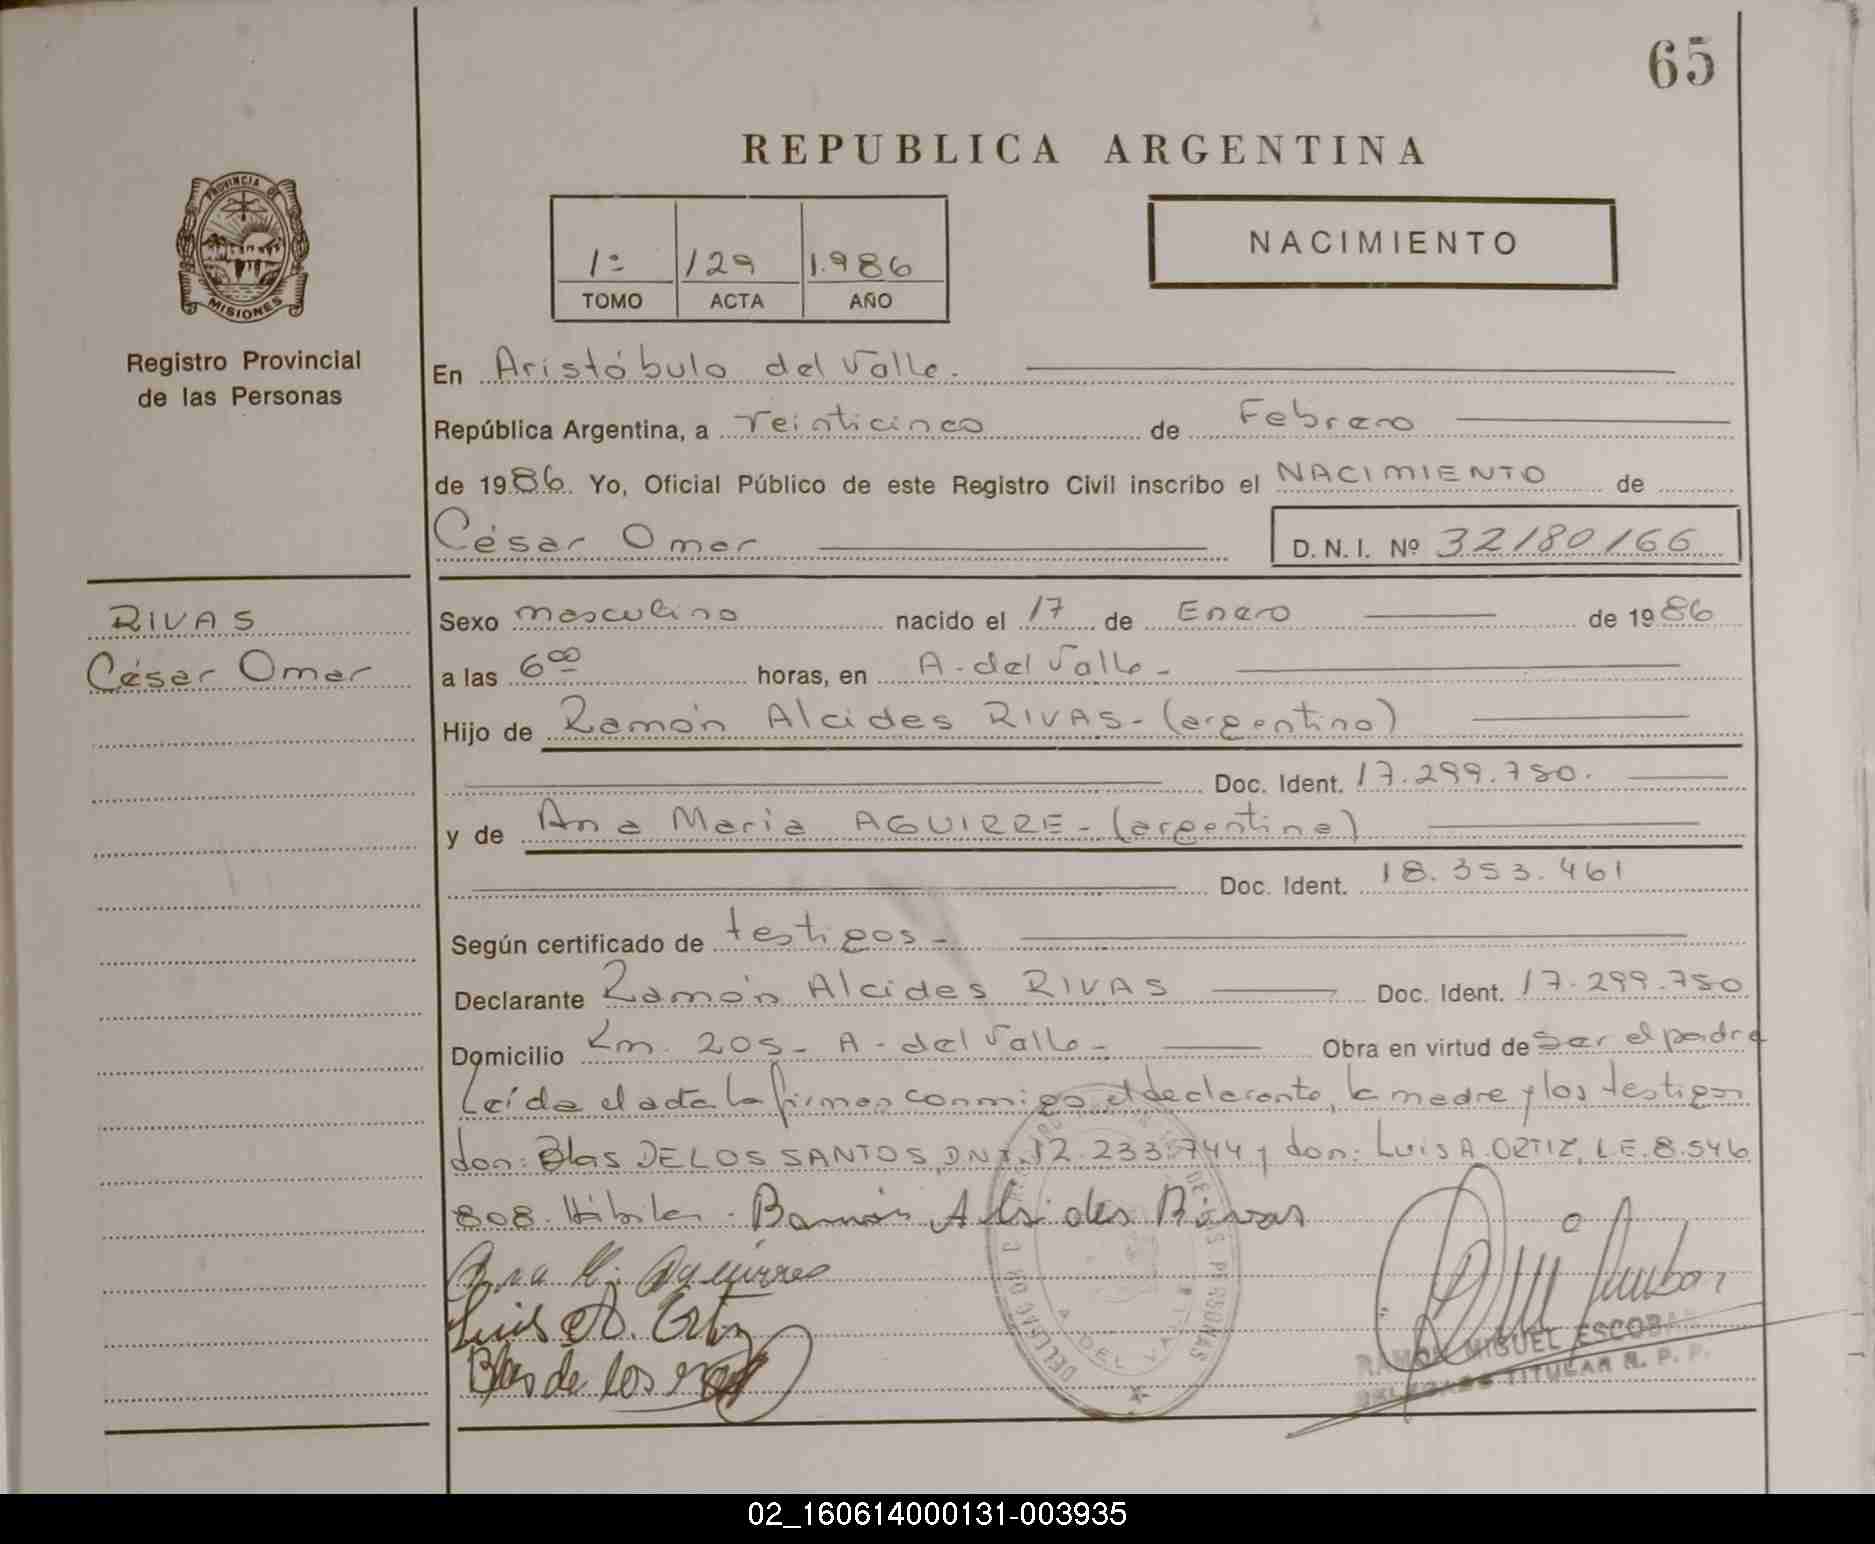 65
REPUBLICA ARGENTINA
PROVINCIA DE
MISIONES
Registro Provincial
de las Personas
1º 129 1.986
TOMO ACTA AÑO
NACIMIENTO
En Aristóbulo del Valle.
República Argentina, a Veinticinco de Febrero
de 1986. Yo, Oficial Público de este Registro Civil inscribo el NACIMIENTO de
César Omar D.N.I. Nº 32180166
RIVAS
César Omar
Sexo masculino nacido el 17 de Enero de 1986
a las 6⁰⁰ horas, en A. del Valle-
Hijo de Ramón Alcides RIVAS- (argentino)
Doc. Ident. 17.299.750.
y de Ana María AGUIRRE- (argentina)
Doc. Ident. 18.353.461
Según certificado de testigos-
Declarante Ramón Alcides RIVAS Doc. Ident. 17.299.750
Domicilio Km. 205- A. del Valle- Obra en virtud de Ser el padre
Leída el acta la firman conmigo el declarante, la madre y los testigos
don: Blas DE LOS SANTOS, DNI. 12.233.744 y don: Luis A. ORTIZ, L.E. 8.546
808. Hábiles. Ramón Alsides Rivas
Ana M. Aguirre
Luis A. Ortiz
Blas de los
A. DEL VALLE
RAMON MIGUEL ESCOBAR
DELEGADO TITULAR R. P. P.
02_160614000131-003935